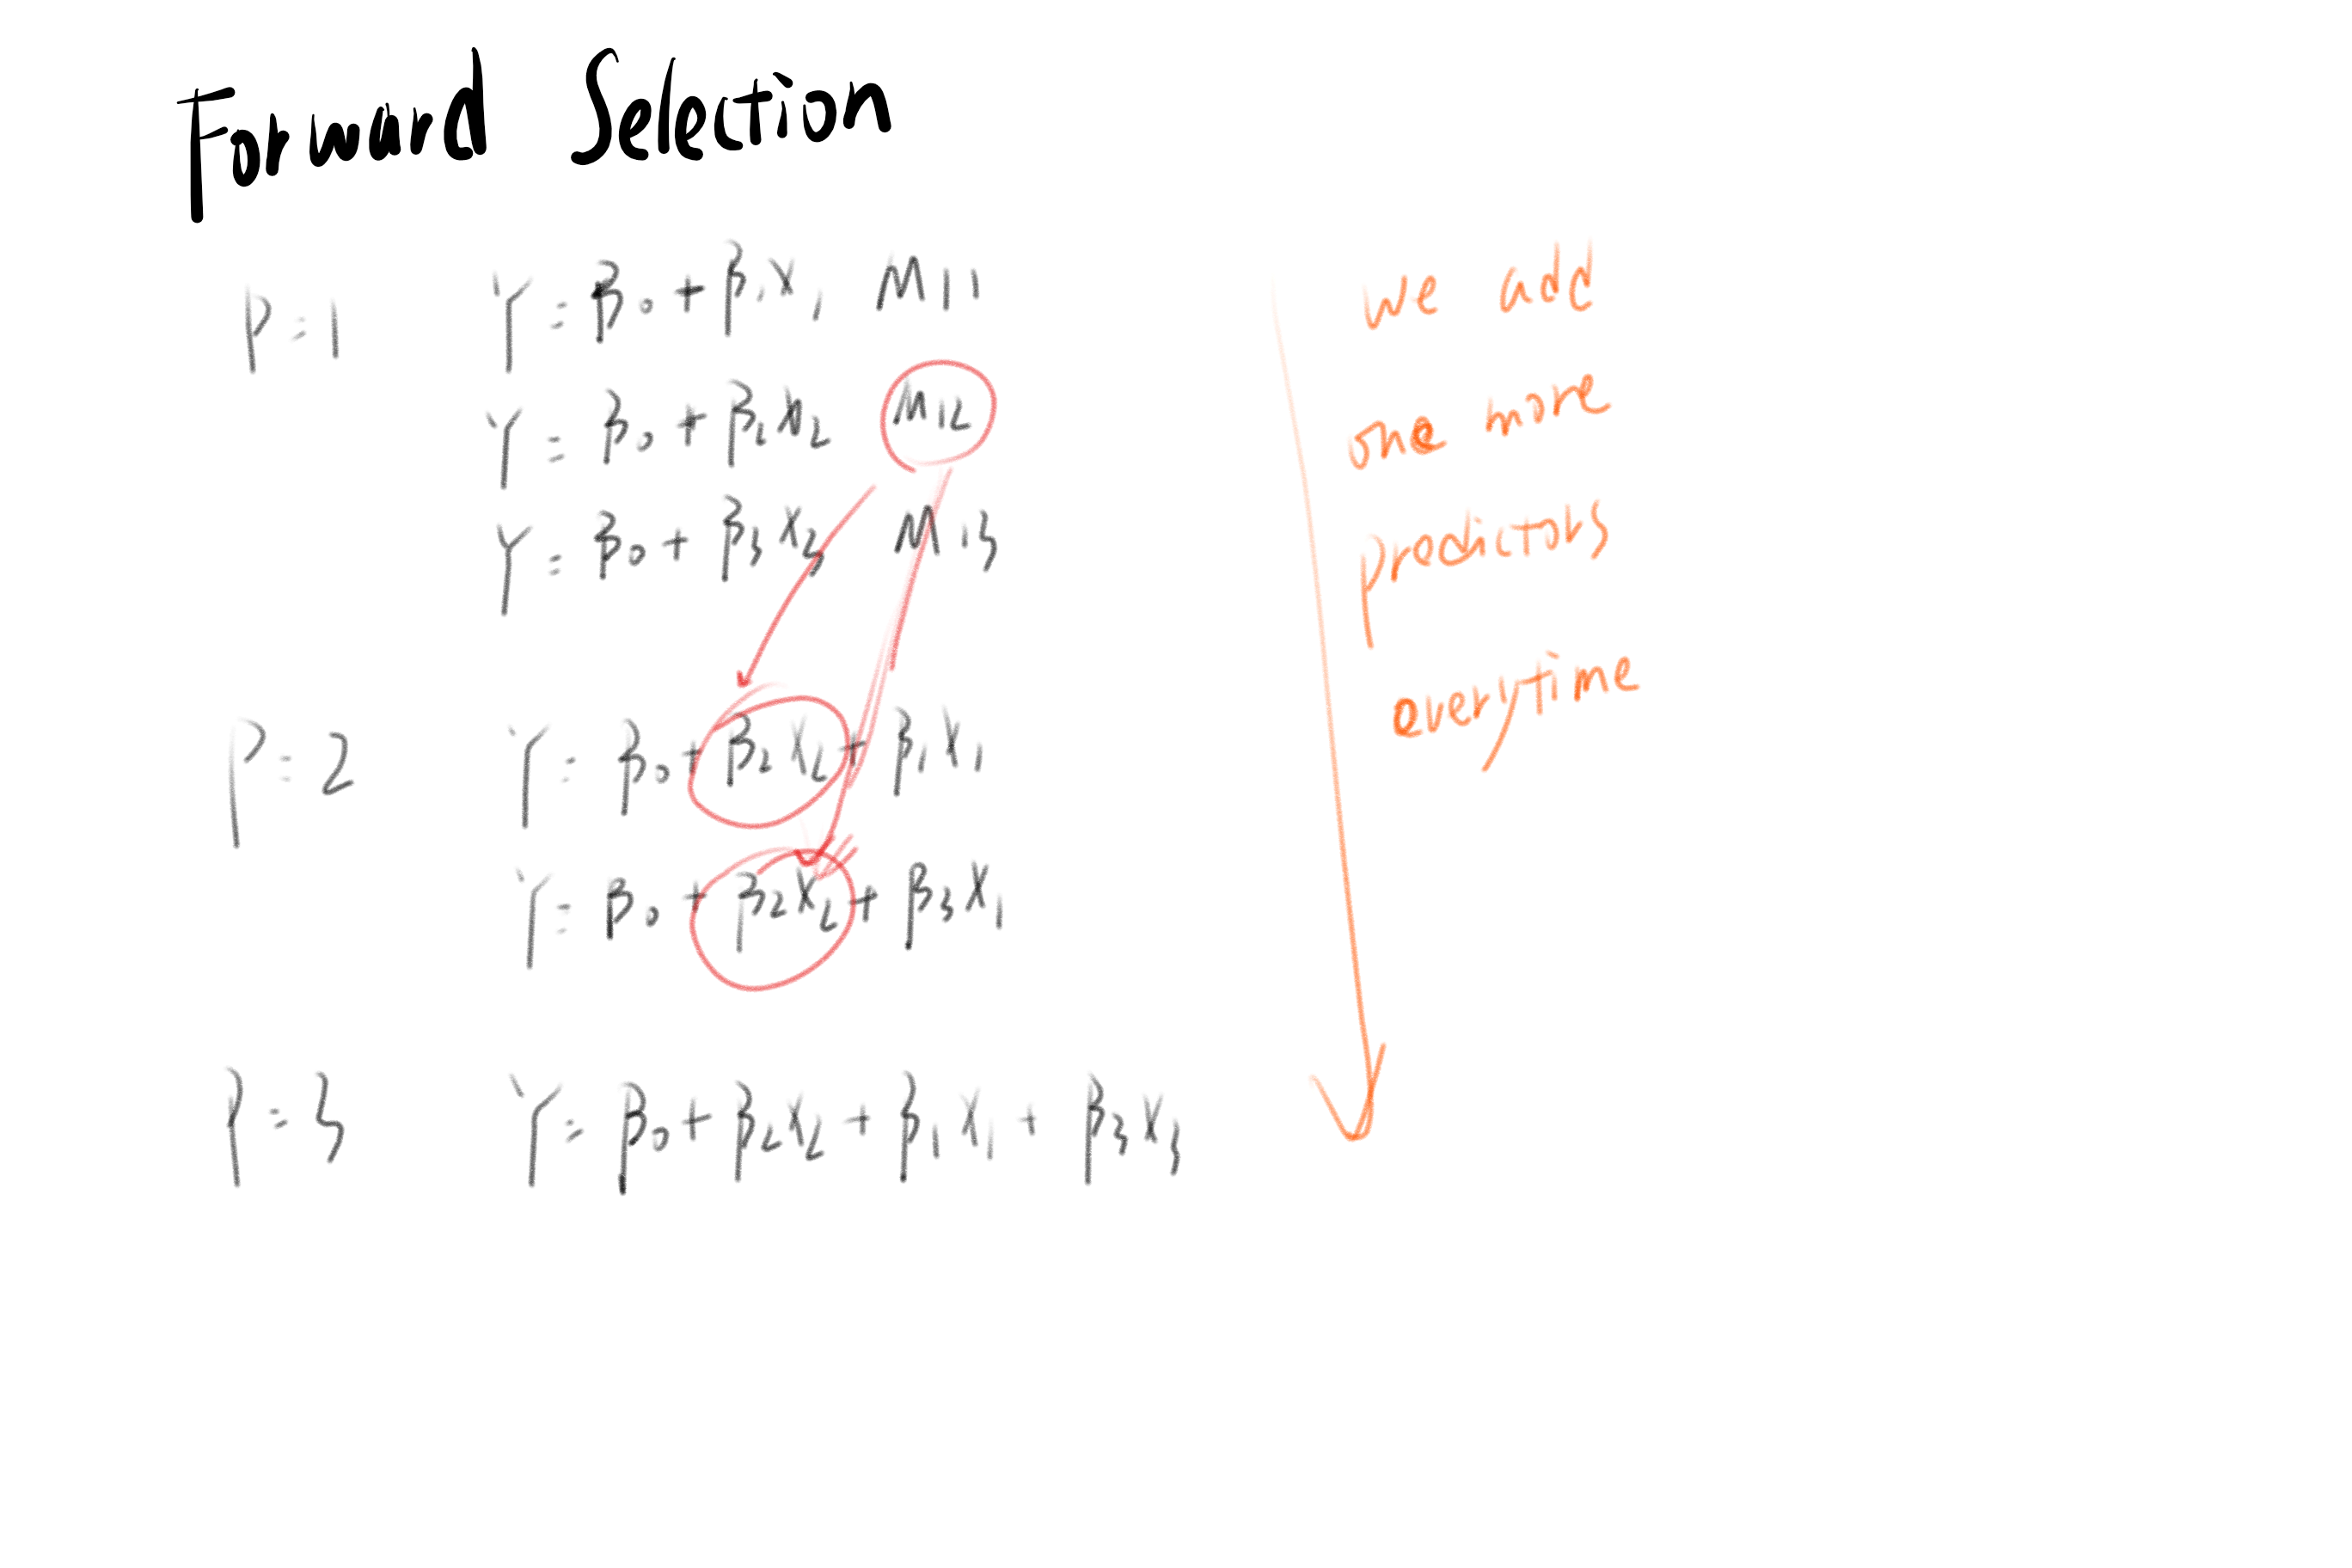 Forward Selection
P=1 Y = β0 + β1X1 M11
Y = β0 + β2X2 M12
Y = β0 + β3X3 M13
P=2 Y = β0 + β2X2 + β1X1
Y = β0 + β2X2 + β3X1
P=3 Y = β0 + β2X2 + β1X1 + β3X3
we add
one more
predictors
everytime